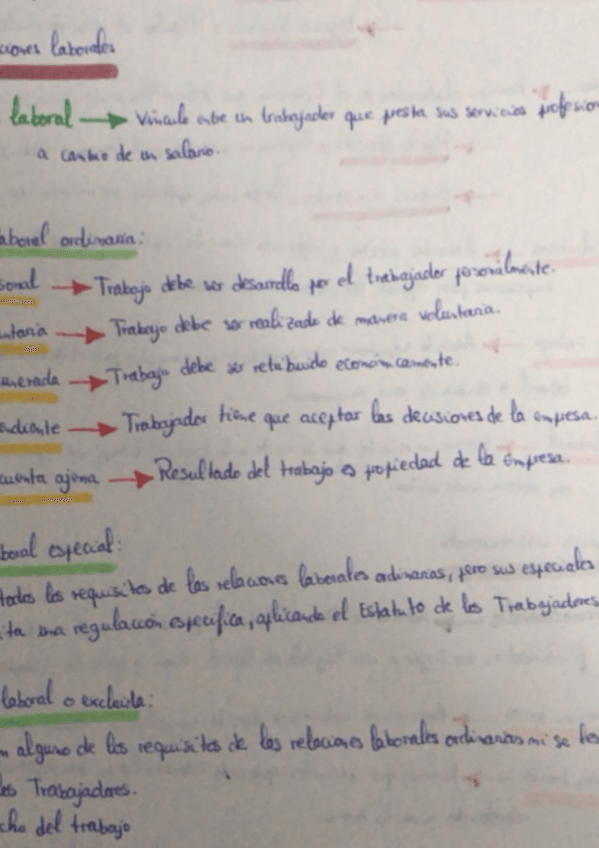 ciones laborales
laboral → Vínculo entre un trabajador que presta sus servicios profesion
a cambio de un salario.
aboral ordinaria:
sonal → Trabajo debe ser desarrollo por el trabajador personalmente.
untaria → Trabajo debe ser realizado de manera voluntaria.
unerada → Trabajo debe ser retribuido económicamente.
endiente → Trabajador tiene que aceptar las decisiones de la empresa.
cuenta ajena → Resultado del trabajo es propiedad de la empresa.
boral especial:
todos los requisitos de las relaciones laborales ordinarias, pero sus especiales
ita una regulación específica, aplicando el Estatuto de los Trabajadores
laboral o excluida:
n alguno de los requisitos de las relaciones laborales ordinarias ni se les
los Trabajadores.
cho del trabajo